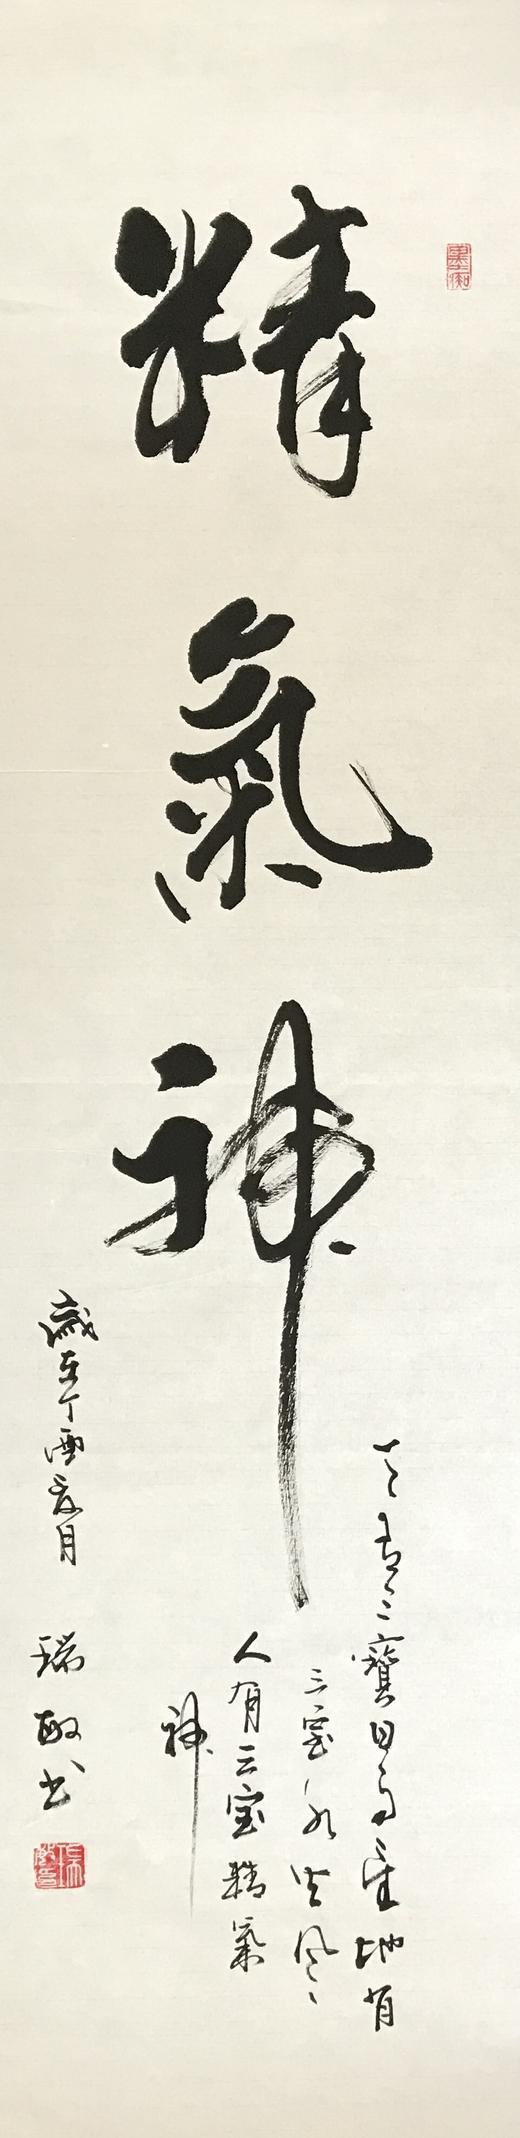 精氣神
天有三寶日月星地有
三宝水火風
人有三宝精氣
神
歲在丁酉夏月
瑞敏书
墨痴